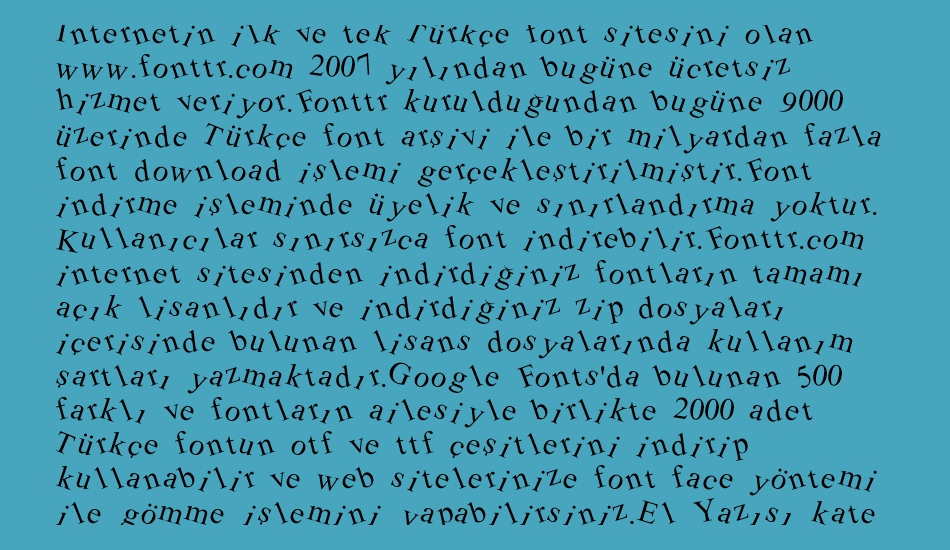 Internetin ilk ve tek Türkçe font sitesini olan
www.fonttr.com 2007 yılından bugüne ücretsiz
hizmet veriyor.Fonttr kurulduğundan bugüne 9000
üzerinde Türkçe font arşivi ile bir milyardan fazla
font download işlemi gerçekleştirilmiştir.Font
indirme işleminde üyelik ve sınırlandırma yoktur.
Kullanıcılar sınırsızca font indirebilir.Fonttr.com
internet sitesinden indirdiğiniz fontların tamamı
açık lisanlıdır ve indirdiğiniz zip dosyaları
içerisinde bulunan lisans dosyalarında kullanım
şartları yazmaktadır.Google Fonts'da bulunan 500
farklı ve fontların ailesiyle birlikte 2000 adet
Türkçe fontun otf ve ttf çeşitlerini indirip
kullanabilir ve web sitelerinize font face yöntemi
ile gömme işlemini yapabilirsiniz.El Yazısı kate